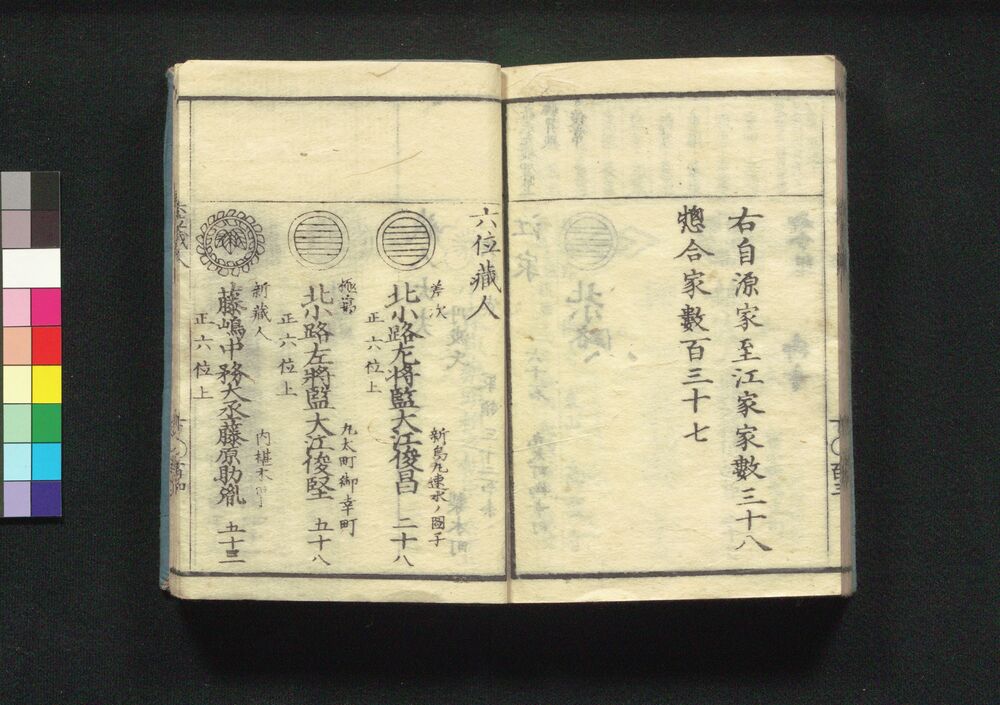 右自源家至江家家數三十八
惣合家數百三十七
六位藏人
差次
新烏丸速水ノ圖子
北小路左將監大江俊昌 二十八
正六位上
極﨟
丸太町御幸町
北小路左將監大江俊堅 五十八
正六位上
新藏人
内椹木町
藤嶋中務大丞藤原助胤 五十三
正六位上